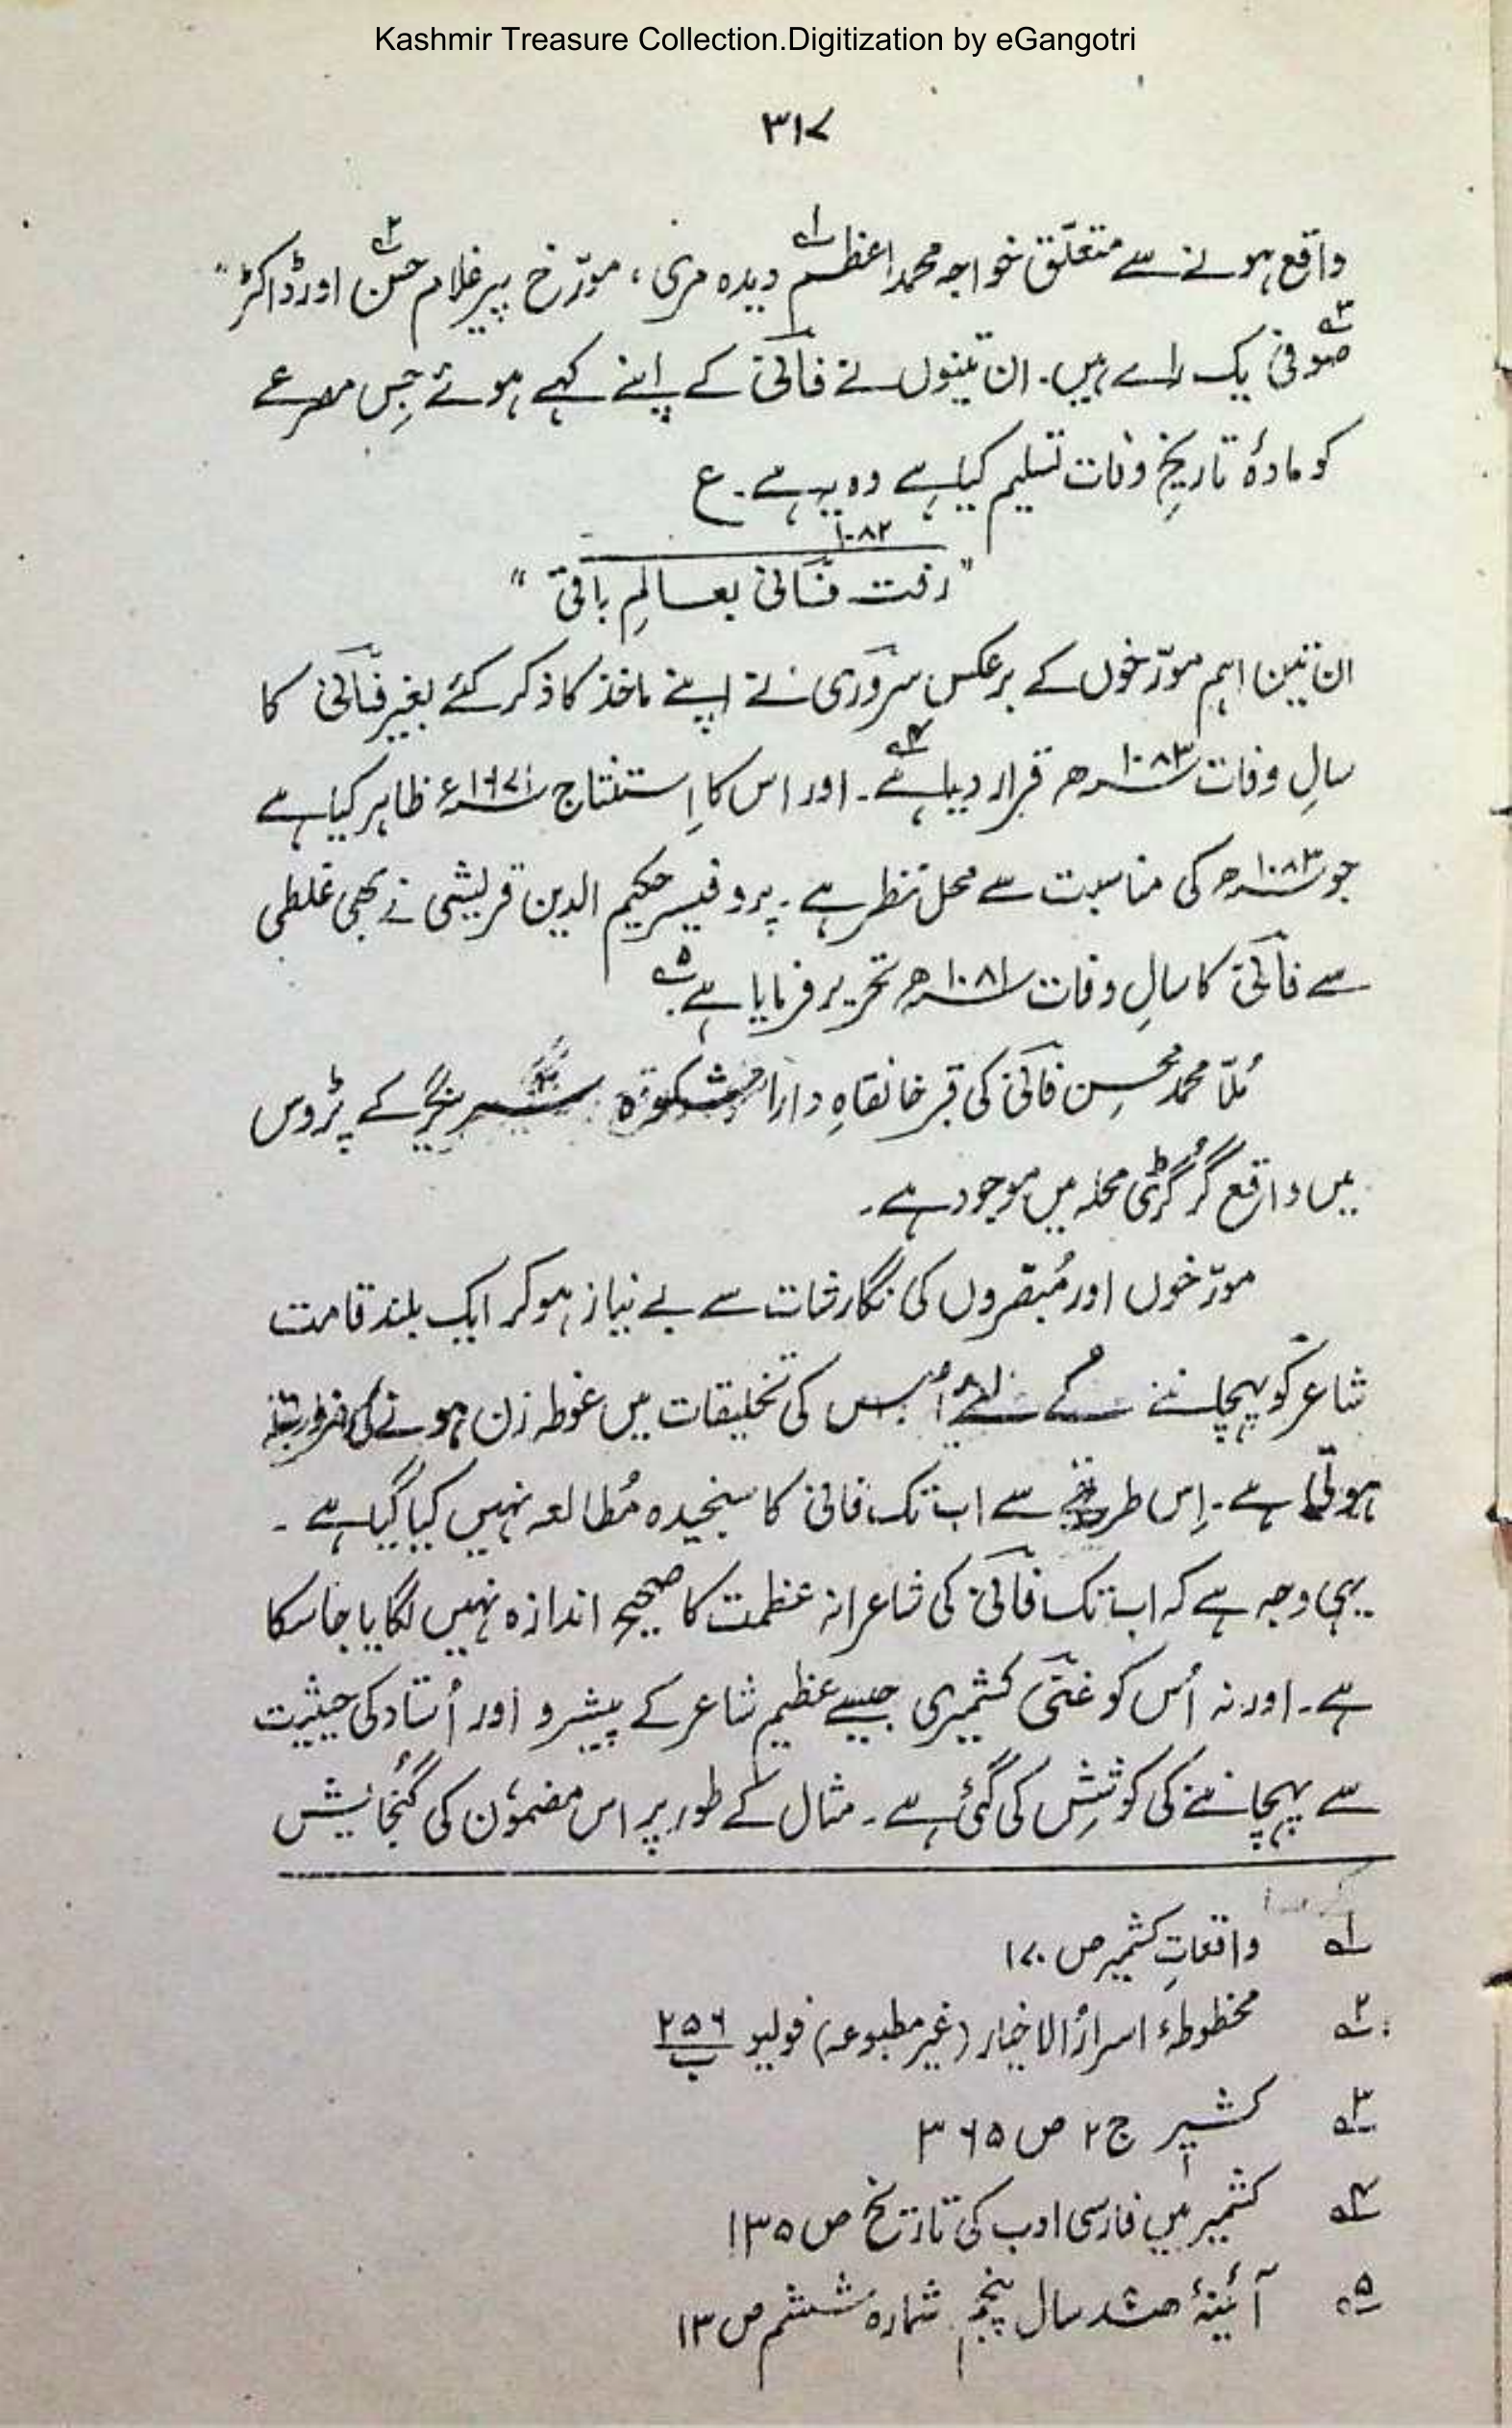 Kashmir Treasure Collection.Digitization by eGangotri
۳۱۷
واقع ہونے سے متعلّق خواجہ محمد اعظم۱؎ دیدہ مری، مورّخ پیر غلام حسن۲؎ اور ڈاکٹر"
صوفی۳؎ یک رائے ہیں۔ ان تینوں نے فانی کے اپنے کہے ہوئے جِس مصرعے
کو مادۂ تاریخِ وفات تسلیم کیا ہے وہ یہ ہے۔ ع
۱۰۸۲
"رفت فانی بعالمِ باقی"
ان تین اہم مورّخوں کے برعکس سروری نے اپنے ماخذ کا ذکر کئے بغیر فانی کا
سالِ وفات ۱۰۸۳ھ قرار دیا ہے۴؎۔ اور اس کا اِستنتاج ۱۶۷۱ء ظاہر کیا ہے
جو ۱۰۸۳ھ کی مناسبت سے محل نظر ہے۔ پروفیسر حکیم الدین قریشی نے بھی غلطی
سے فانی کا سالِ وفات ۱۰۸۱ھ تحریر فرمایا ہے۵؎۔
مُلّا محمد محسن فانی کی قبر خانقاہِ دارا شکوہ سرینگر کے پڑوس
میں واقع گُرگڑی محلہ میں موجود ہے۔
مورّخوں اور مُبصّروں کی نگارشات سے بے نیاز ہو کر ایک بلند قامت
شاعر کو پہچاننے کے لئے اُس کی تخلیقات میں غوطہ زن ہونے کی ضرورت
ہوتی ہے۔ اِس طریقے سے اب تک فانی کا سنجیدہ مُطالعہ نہیں کیا گیا ہے۔
یہی وجہ ہے کہ اب تک فانی کی شاعرانہ عظمت کا صحیح اندازہ نہیں لگایا جا سکا
ہے۔ اور نہ اُس کو غنی کشمیری جیسے عظیم شاعر کے پیشرو اور اُستاد کی حیثیت
سے پہچاننے کی کوشِش کی گئی ہے۔ مثال کے طور پر اس مضمون کی گُنجائیش
۱؎ واقعاتِ کشمیر ص ۱۷۰
۲؎ مخطوطۂ اسرارُ الاخیار (غیر مطبوعہ) فولیو ۲۵۶ ب
۳؎ کشیر ج ۲ ص ۳۶۵
۴؎ کشمیر میں فارسی ادب کی تاریخ ص ۱۳۵
۵؎ آئینۂ ہند سال پنجم شمارہ ششم ص ۱۳